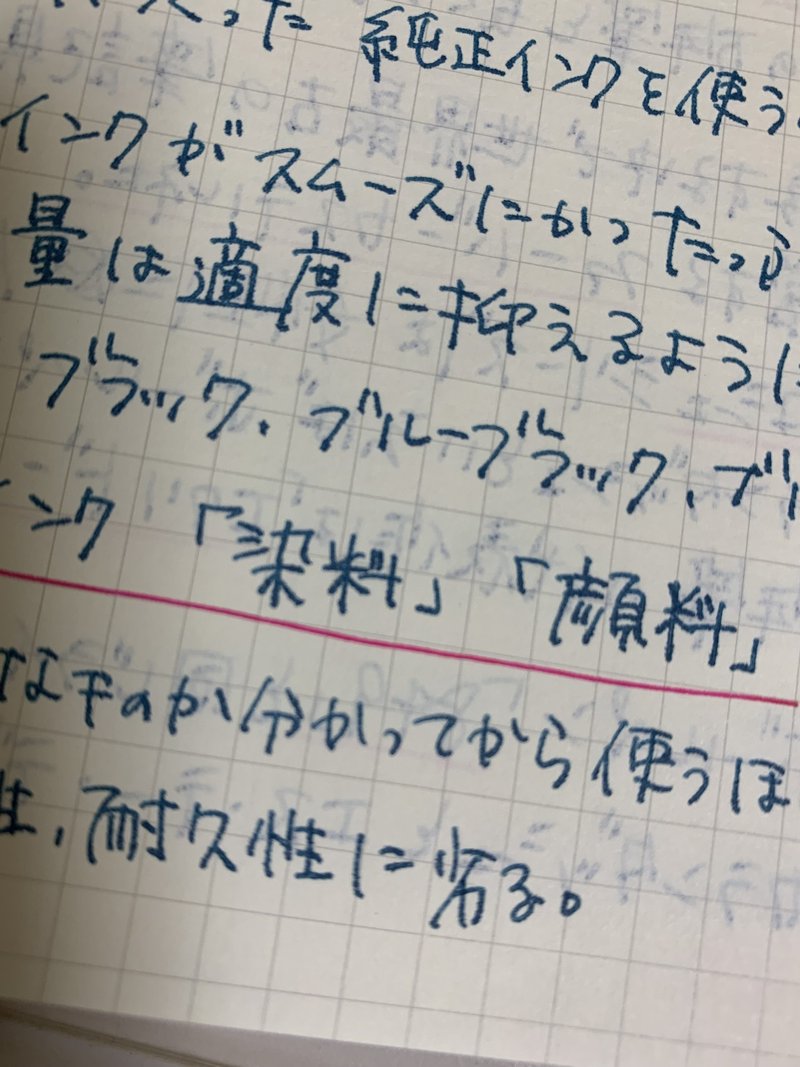 った 純正インクを使う
インクがスムーズにかつ たっぷ
量は適度に抑えるように
ブラック、ブルーブラック、ブル
インク 「染料」「顔料」
なものか分かってから使うほ
性、耐久性に劣る。